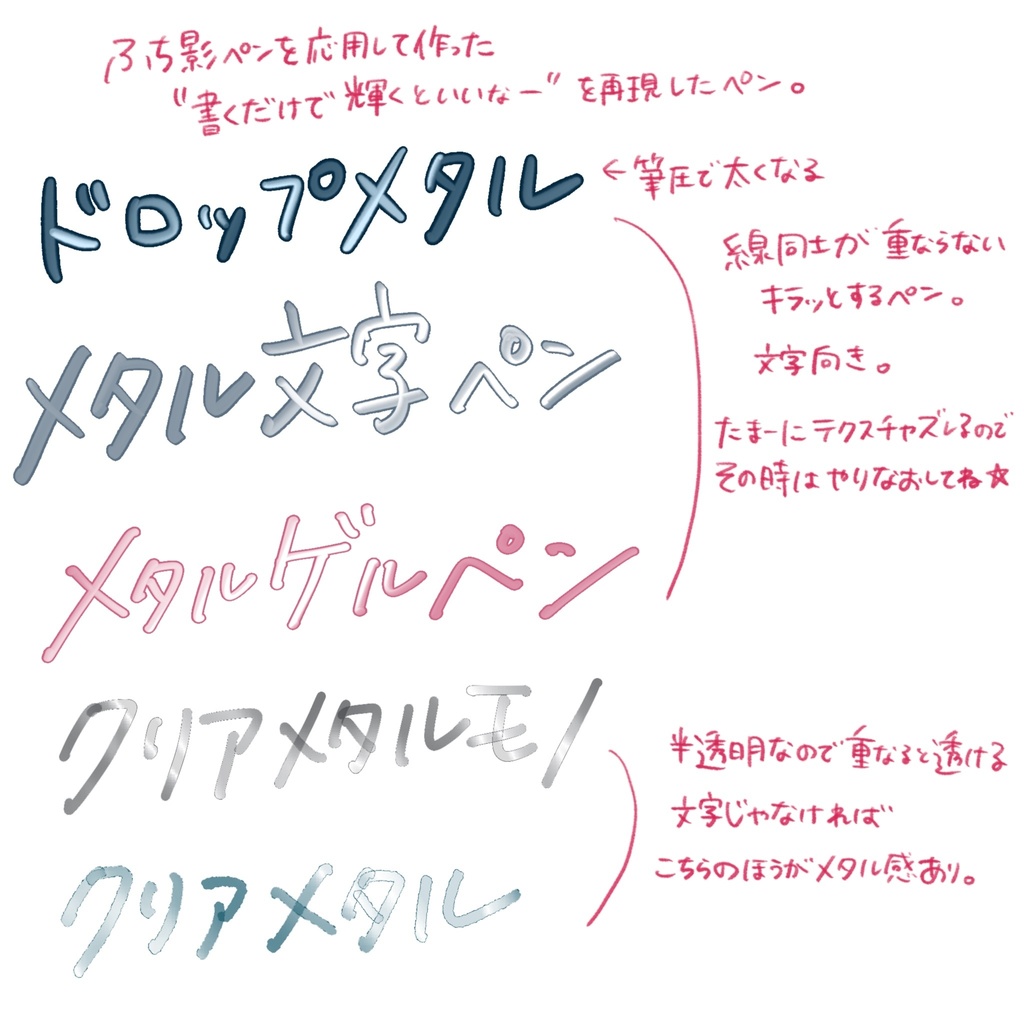 ふち影ペンを応用して作った
"書くだけで輝くといいなー"を再現したペン。
ドロップメタル
←筆圧で太くなる
線同士が重ならない
キラッとするペン。
文字向き。
たまーにテクスチャズレるので
その時はやりなおしてね☆
メタル文字ペン
メタルゲルペン
クリアメタルモノ
クリアメタル
半透明なので重なると透ける
文字じゃなければ
こちらのほうがメタル感あり。